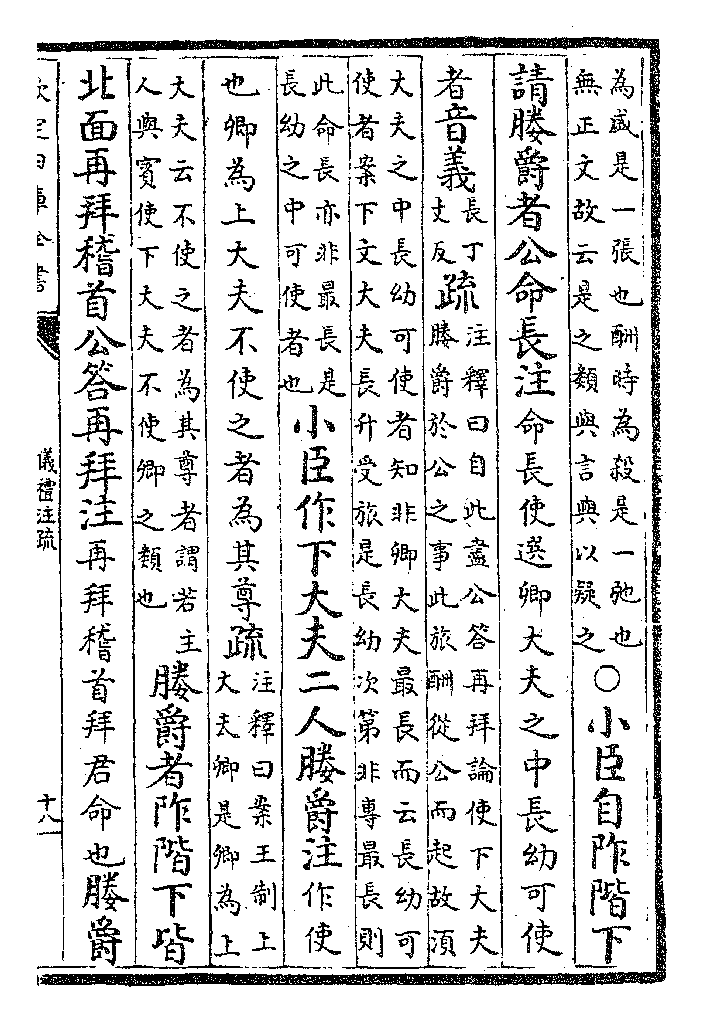 為盛是一張也酬時為殺是一弛也
無正文故云是之類與言與以疑之
○小臣自阼階下
請媵爵者公命長注命長使選卿大夫之中長幼可使
者音義長丁
丈反
疏注釋曰自此盡公答再拜論使下大夫
媵爵於公之事此旅酬從公而起故須
大夫之中長幼可使者知非卿大夫最長而云長幼可
使者案下文大夫長升受旅是長幼次第非專最長則
此命長亦非最長是
長幼之中可使者也
小臣作下大夫二人媵爵注作使
也卿為上大夫不使之者為其尊疏注釋曰案王制上
大夫卿是卿為上
大夫云不使之者為其尊者謂若主
人與賓使下大夫不使卿之類也
媵爵者阼階下皆
北面再拜稽首公答再拜注再拜稽首拜君命也媵爵
欽定四庫全書
儀禮注疏
十八